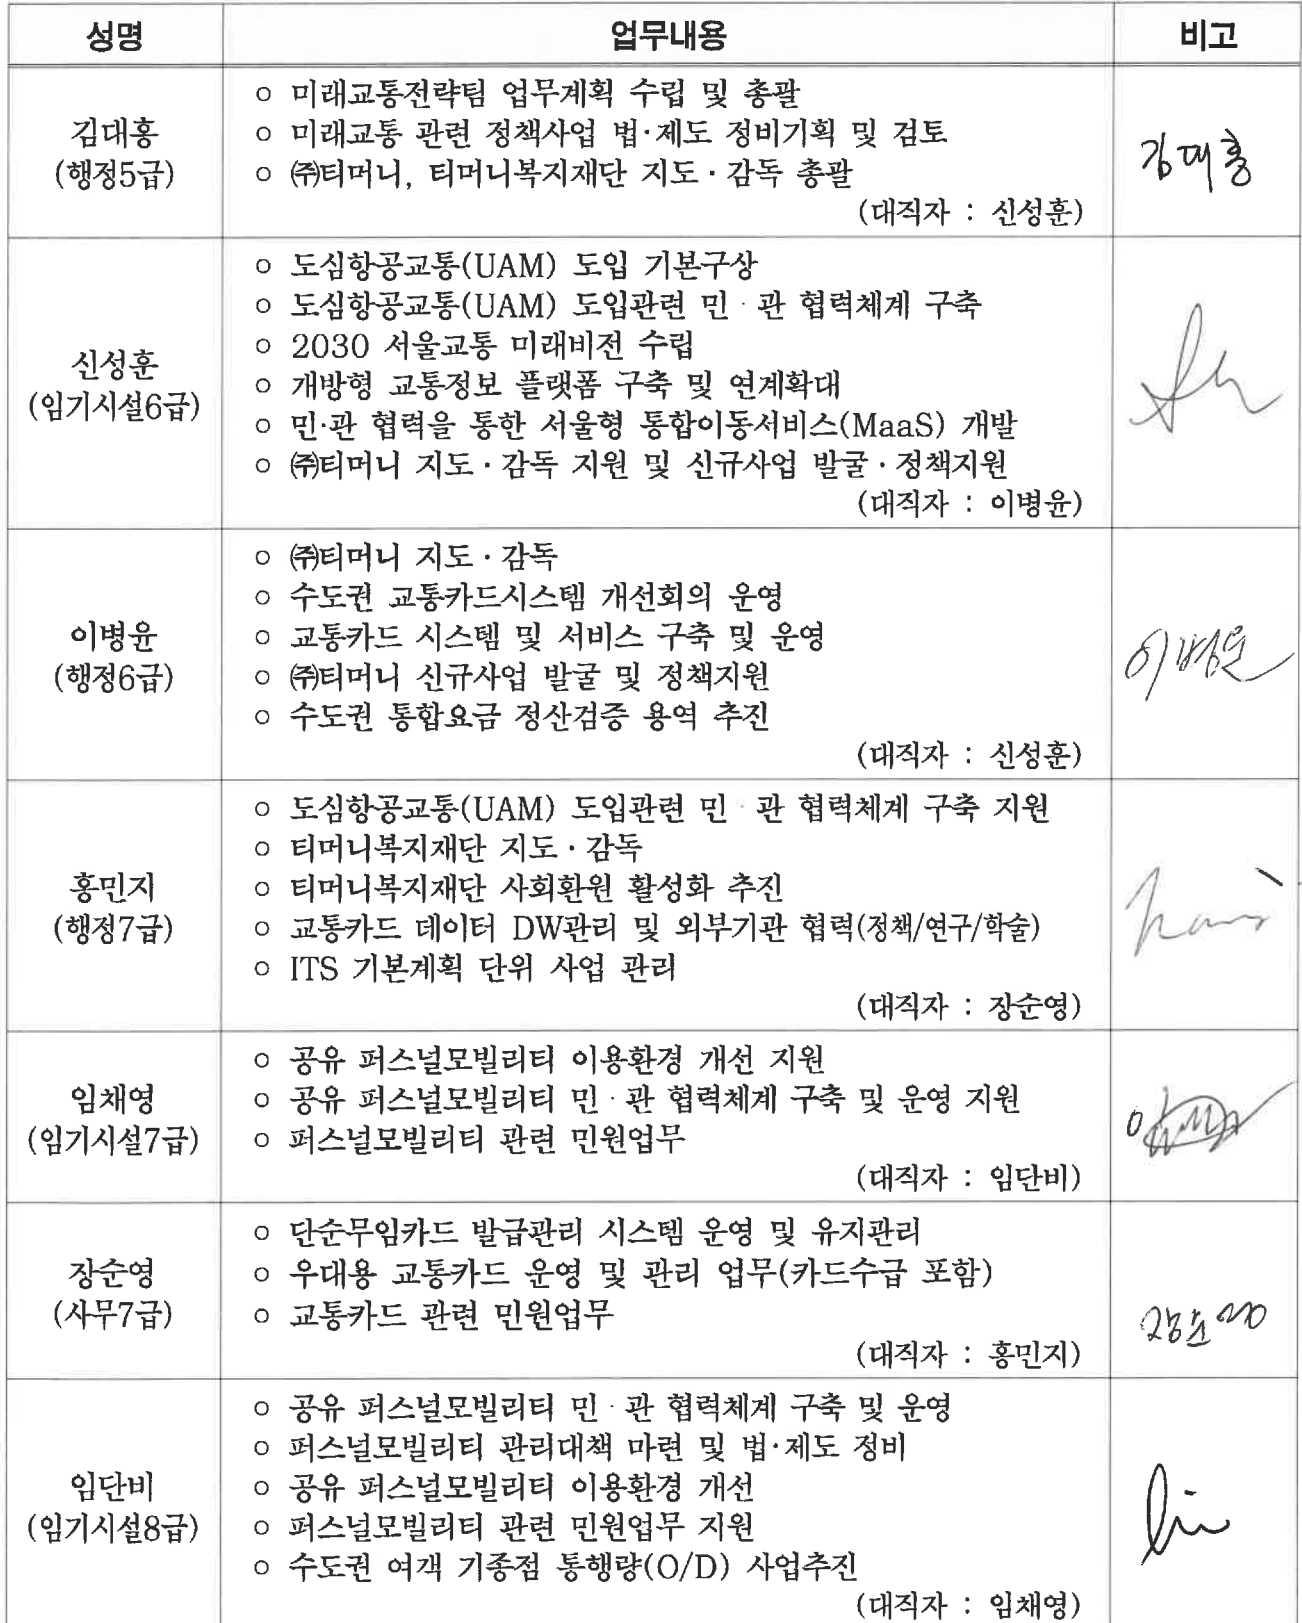 성명 업무내용 비고
김대홍
(행정5급)
○ 미래교통전략팀 업무계획 수립 및 총괄
○ 미래교통 관련 정책사업 법·제도 정비기획 및 검토
○ ㈜티머니, 티머니복지재단 지도·감독 총괄
(대직자 : 신성훈)
김대홍
신성훈
(임기시설6급)
○ 도심항공교통(UAM) 도입 기본구상
○ 도심항공교통(UAM) 도입관련 민·관 협력체계 구축
○ 2030 서울교통 미래비전 수립
○ 개방형 교통정보 플랫폼 구축 및 연계확대
○ 민·관 협력을 통한 서울형 통합이동서비스(MaaS) 개발
○ ㈜티머니 지도·감독 지원 및 신규사업 발굴·정책지원
(대직자 : 이병윤)
이병윤
(행정6급)
○ ㈜티머니 지도·감독
○ 수도권 교통카드시스템 개선회의 운영
○ 교통카드 시스템 및 서비스 구축 및 운영
○ ㈜티머니 신규사업 발굴 및 정책지원
○ 수도권 통합요금 정산검증 용역 추진
(대직자 : 신성훈)
이병윤
홍민지
(행정7급)
○ 도심항공교통(UAM) 도입관련 민·관 협력체계 구축 지원
○ 티머니복지재단 지도·감독
○ 티머니복지재단 사회환원 활성화 추진
○ 교통카드 데이터 DW관리 및 외부기관 협력(정책/연구/학술)
○ ITS 기본계획 단위 사업 관리
(대직자 : 장순영)
임채영
(임기시설7급)
○ 공유 퍼스널모빌리티 이용환경 개선 지원
○ 공유 퍼스널모빌리티 민·관 협력체계 구축 및 운영 지원
○ 퍼스널모빌리티 관련 민원업무
(대직자 : 임단비)
장순영
(사무7급)
○ 단순무임카드 발급관리 시스템 운영 및 유지관리
○ 우대용 교통카드 운영 및 관리 업무(카드수급 포함)
○ 교통카드 관련 민원업무
(대직자 : 홍민지)
장순영
임단비
(임기시설8급)
○ 공유 퍼스널모빌리티 민·관 협력체계 구축 및 운영
○ 퍼스널모빌리티 관리대책 마련 및 법·제도 정비
○ 공유 퍼스널모빌리티 이용환경 개선
○ 퍼스널모빌리티 관련 민원업무 지원
○ 수도권 여객 기종점 통행량(O/D) 사업추진
(대직자 : 임채영)